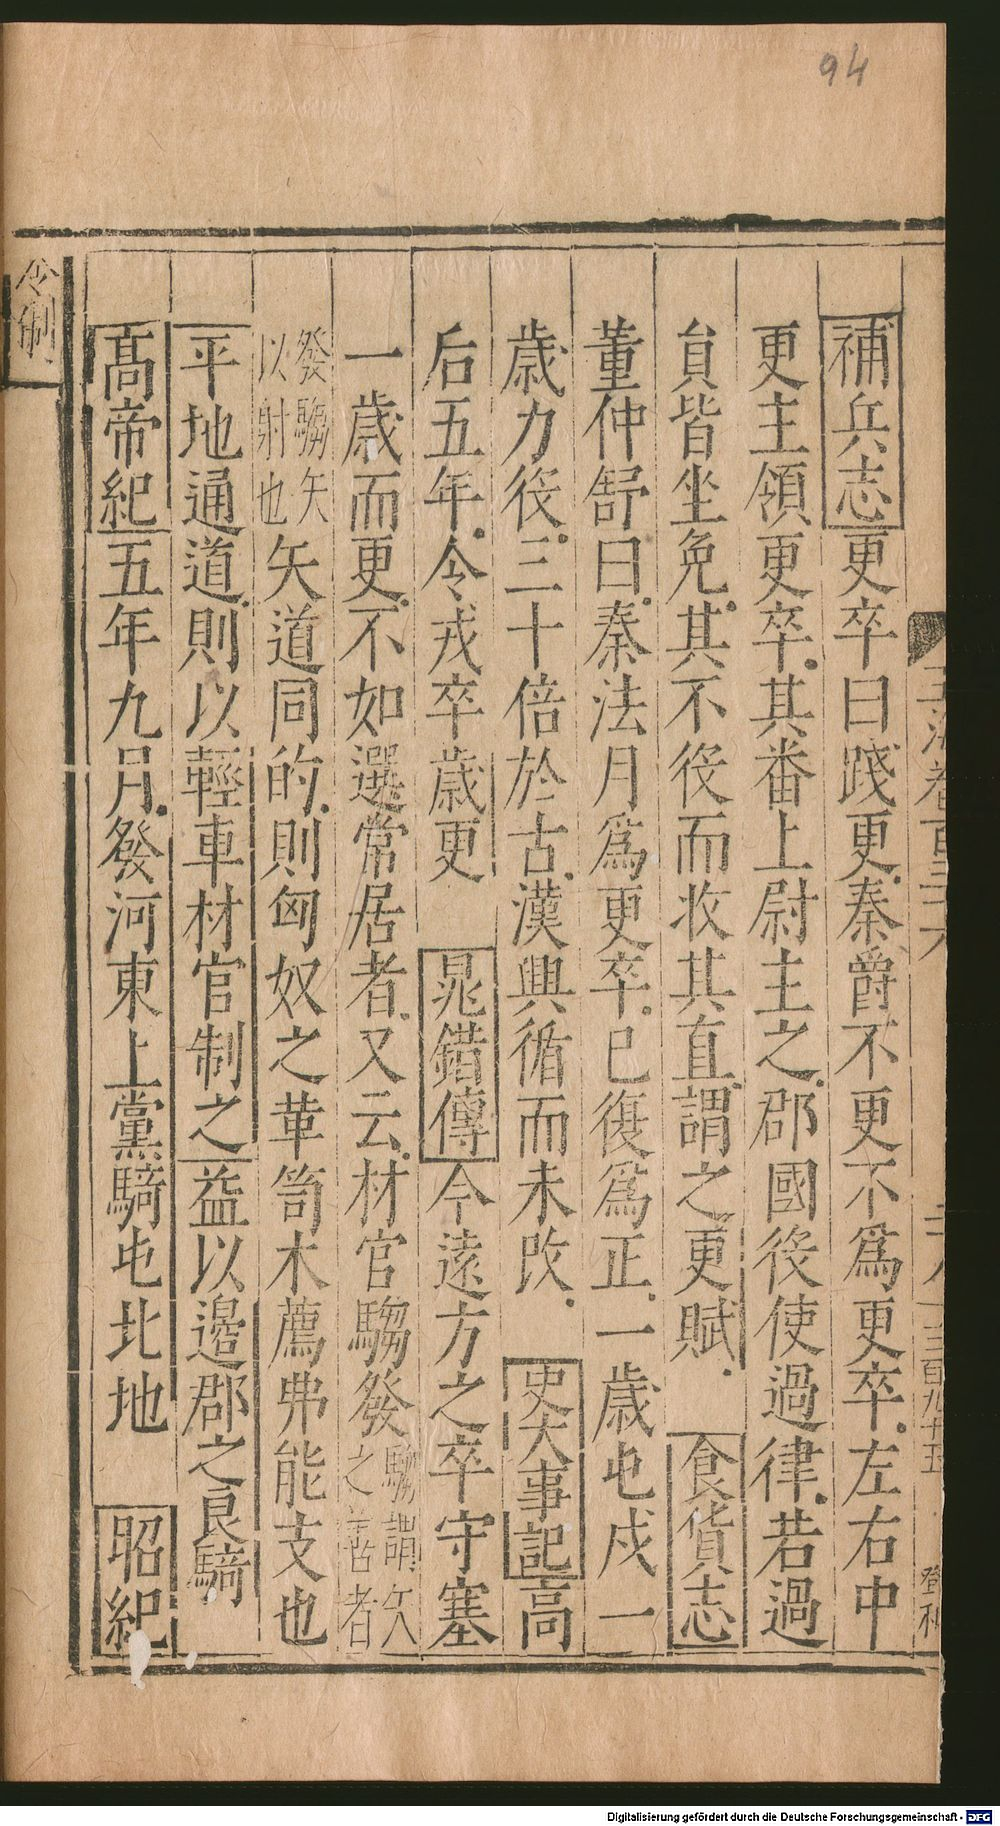 94
補兵志更卒曰踐更秦爵不更不爲更卒左右中
更主領更卒其番上尉主之郡國役使過律若過
貟皆坐免其不役而收其直謂之更賦 食貨志
董仲舒曰秦法月爲更卒已復爲正一歲屯戍一
歲力役三十倍於古漢興循而未改 史大事記高
后五年令戎卒歲更 鼂錯傳今遠方之卒守塞
一歲而更不如選常居者又云材官騶發騶謂矢之善者
發騶矢以射也矢道同的則匈奴之革笥木薦弗能支也
平地通道則以輕車材官制之益以邉郡之良騎
髙帝紀五年九月發河東上黨騎屯北地 昭紀
令制
玉海卷百三十八
三百九十五
Digitalisierung gefördert durch die Deutsche Forschungsgemeinschaft - DFG